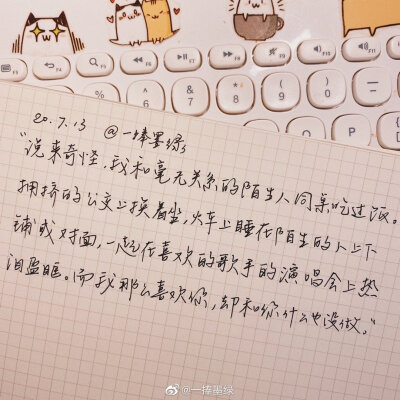 20.7.13
@一捧墨绿
“说来奇怪，我和毫无关系的陌生人同桌吃过饭。
拥挤的公交上挨着坐，火车上睡在陌生的人上下
铺或对面，一起在喜欢的歌手的演唱会上热
泪盈眶。而我那么喜欢你，却和你什么也没做。”
@一捧墨绿